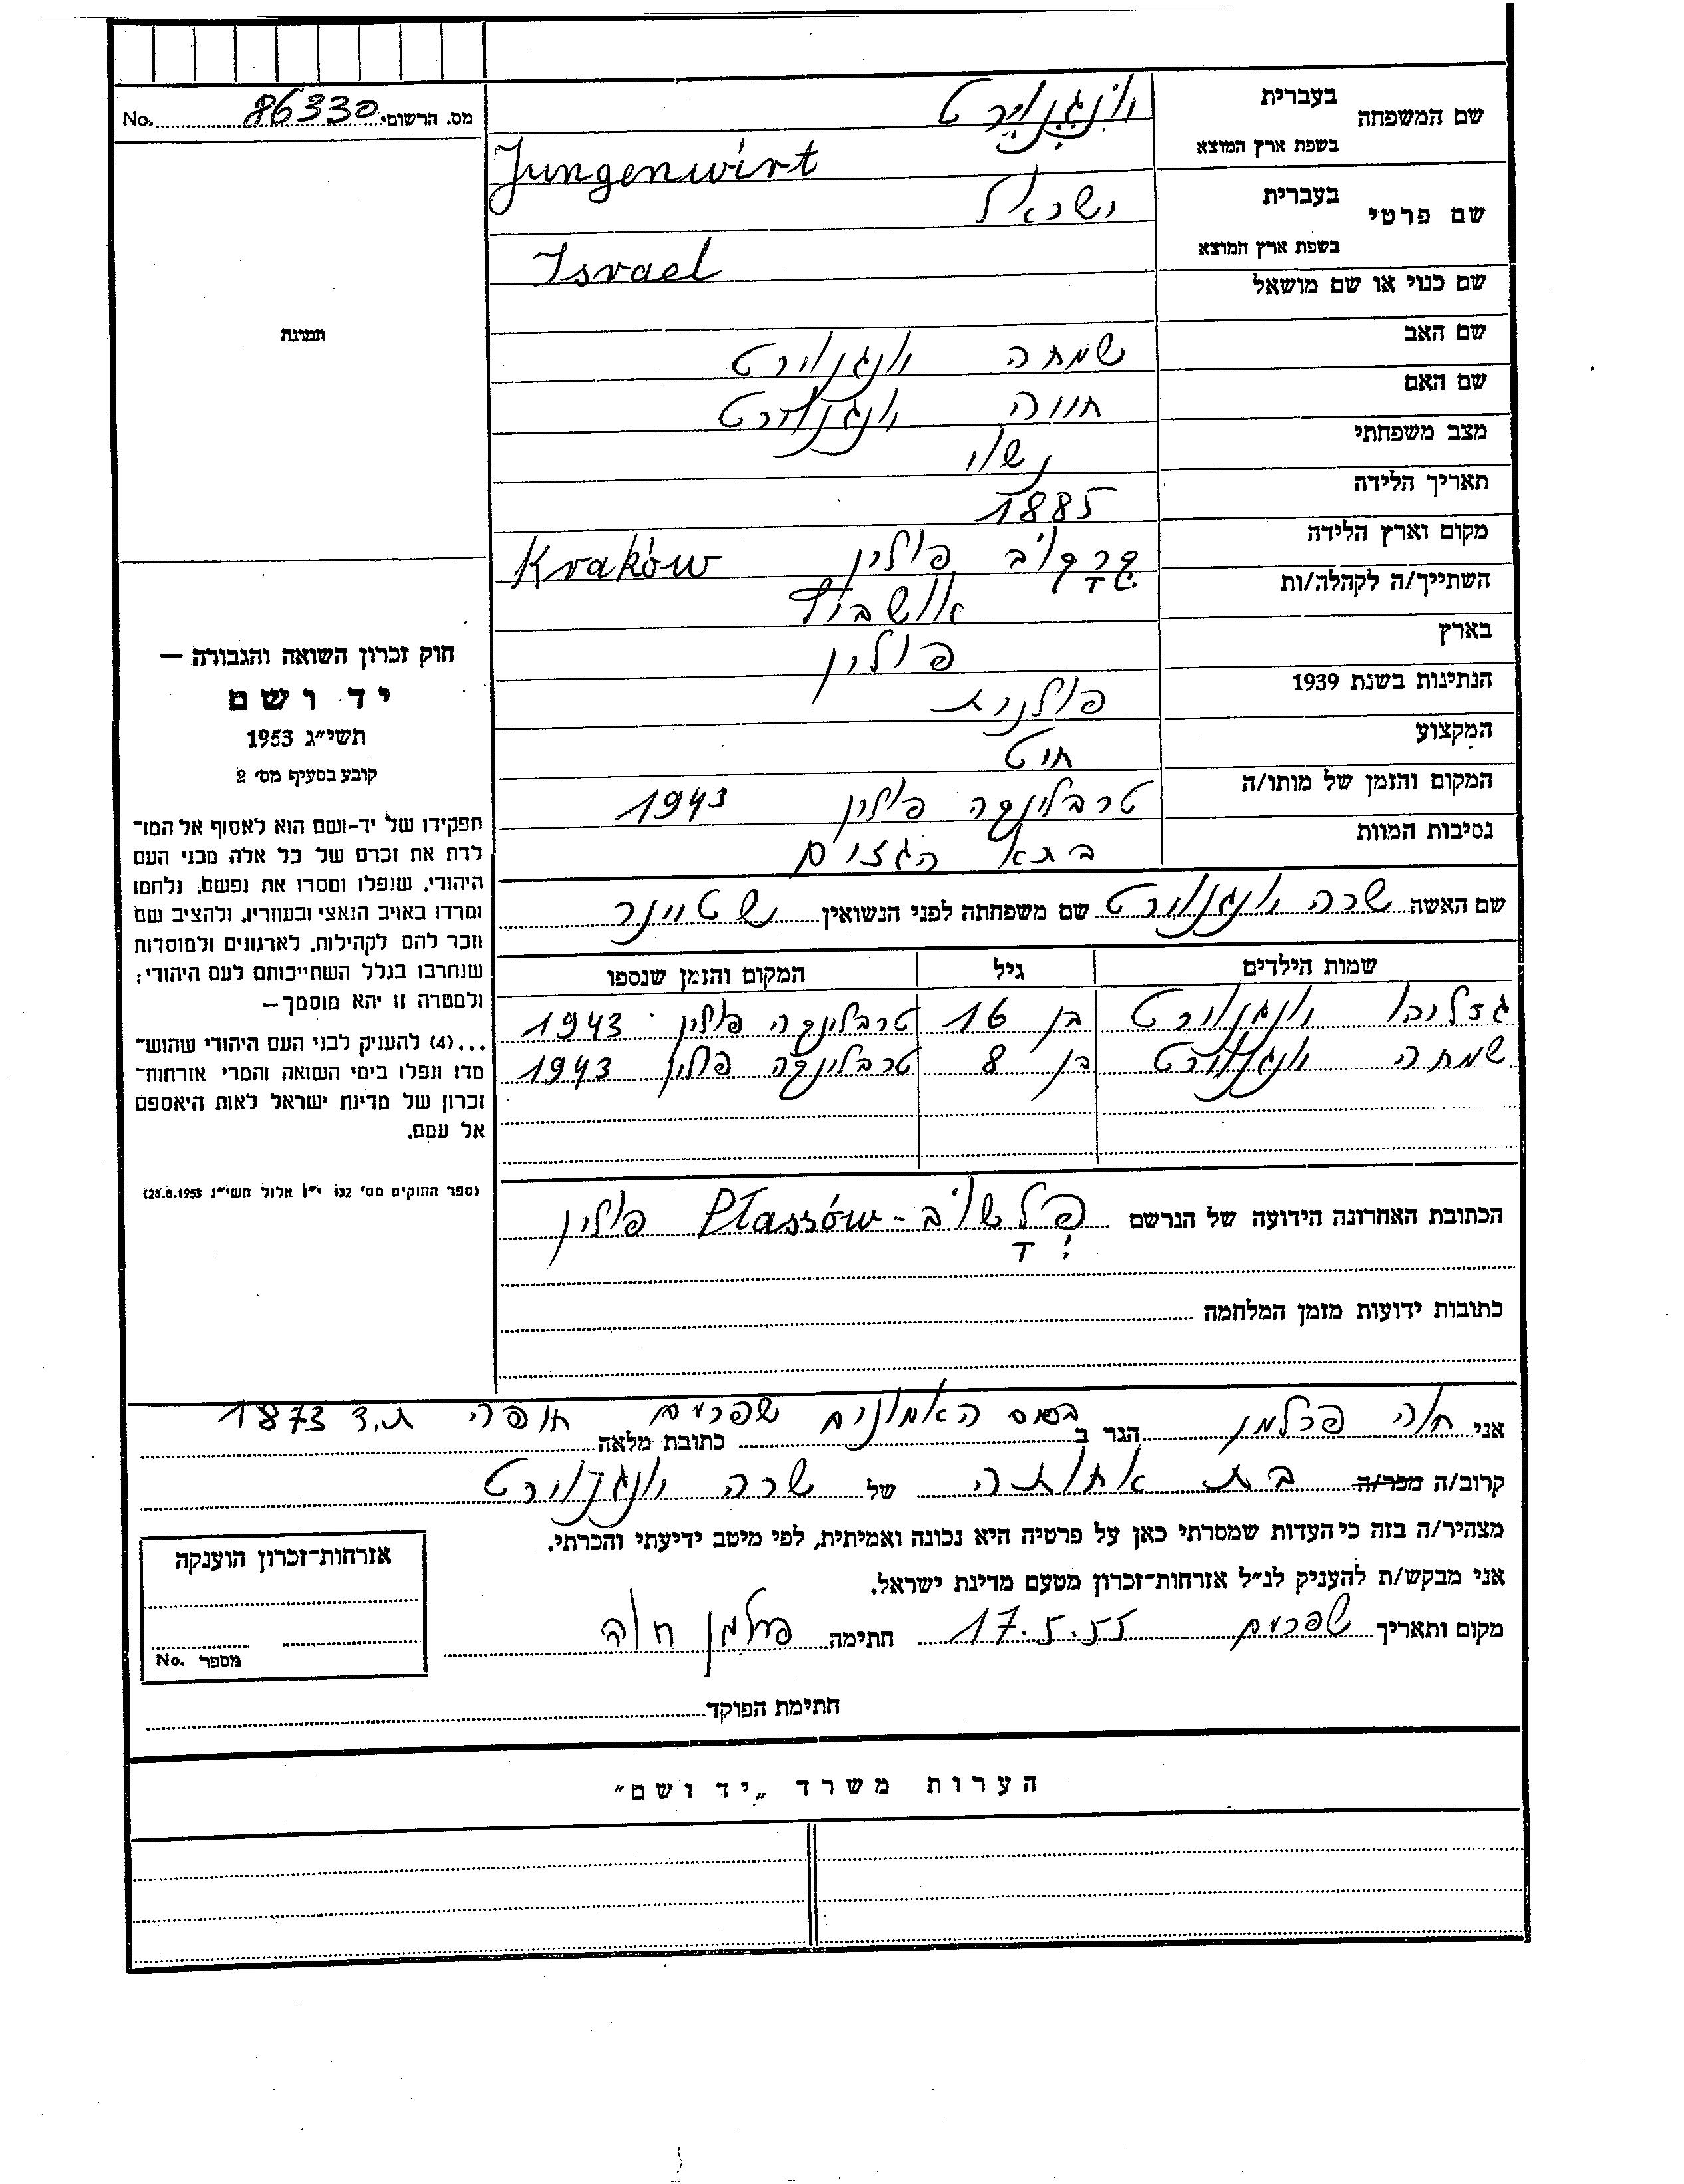 מס. הרשום No. 86330
שם המשפחה בעברית יונגנוירט
בשפת ארץ המוצא Jungenwirt
שם פרטי בעברית ישראל
בשפת ארץ המוצא Israel
שם כנוי או שם מושאל
שם האב שמחה יונגנוירט
שם האם חווה יונגנוירט
מצב משפחתי נשוי
תאריך הלידה 1885
מקום וארץ הלידה קרקוב פולין Kraków
השתייך/ה לקהלה/ות
בארץ פולין
הנתינות בשנת 1939 פולנית
המקצוע
המקום והזמן של מותו/ה טרבלינקה פולין 1943
נסיבות המוות בתא הגזים
שם האשה שרה יונגנוירט שם משפחתה לפני הנשואין שטיינר
שמות הילדים גיל המקום והזמן שנספו
יונגנוירט בן 16 טרבלינקה פולין 1943
שמחה יונגנוירט בן 8 טרבלינקה פולין 1943
הכתובת האחרונה הידועה של הנרשם פלשוב - Płaszów פולין
כתובות ידועות מזמן המלחמה
תמונה
חוק זכרון השואה והגבורה –
יד ושם
תשי״ג 1953
קובע בסעיף מס׳ 2
תפקידו של יד-ושם הוא לאסוף אל המו־
לדת את זכרם של כל אלה מבני העם
היהודי, שנפלו ומסרו את נפשם, נלחמו
ומרדו באויב הנאצי ובעוזריו, ולהציב שם
וזכר להם לקהילות, לארגונים ולמוסדות
שנחרבו בגלל השתייכותם לעם היהודי;
ולמטרה זו יהא מוסמך –
...(4) להעניק לבני העם היהודי שהוש־
מדו ונפלו בימי השואה והמרי אזרחות־
זכרון של מדינת ישראל לאות היאספם
אל עמם.
(ספר החוקים מס׳ 132 י״ז אלול תשי״ג 28.8.1953)
אני חוה פרלמן הגר ב בסיס האמונים שפרעם כתובת מלאה חיפה ת.ד 1873
קרוב/ה מכר/ה בת אחותה של שרה יונגנוירט
מצהיר/ה בזה כי העדות שמסרתי כאן על פרטיה היא נכונה ואמיתית, לפי מיטב ידיעתי והכרתי.
אני מבקש/ת להעניק לנ״ל אזרחות־זכרון מטעם מדינת ישראל.
מקום ותאריך שפרעם 17.5.55 חתימה פרלמן חוה
אזרחות־זכרון הוענקה
מספר No.
חתימת הפוקד
הערות משרד „יד ושם״